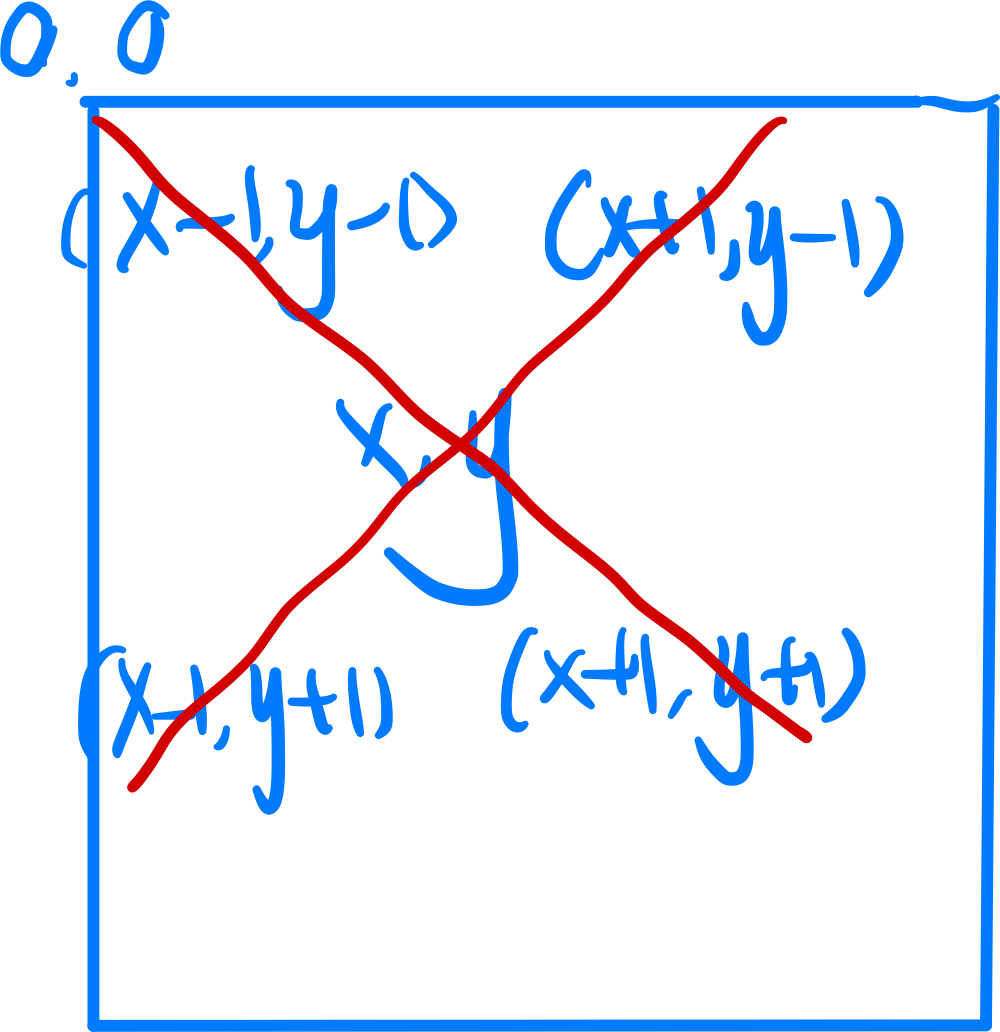 0,0
(x-1,y-1) (x+1,y-1)
x,y
(x-1,y+1) (x+1,y+1)